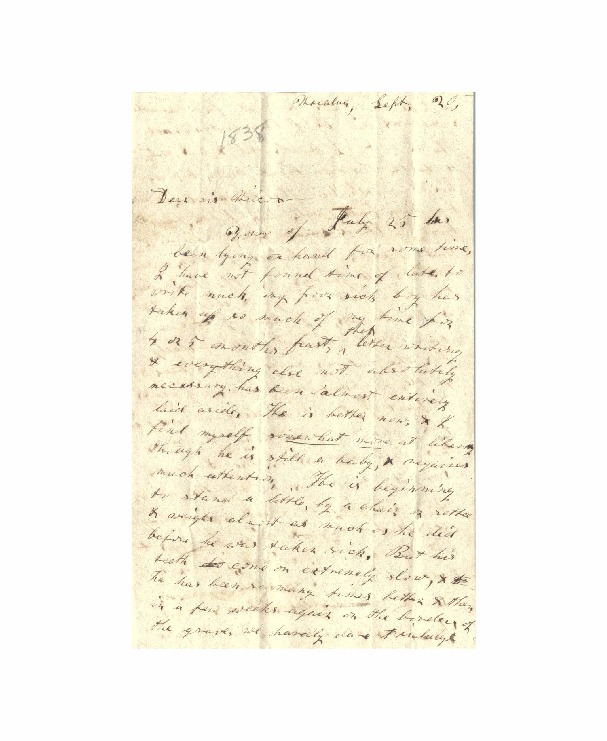 Sept. 20,
1838
Dear sis
Yours of July 25 has
been lying on hand for some time,
I have not found time of late to
write much, my poor sick boy has
taken up so much of my time for
4 or 5 months past, that letter writing
& everything else not absolutely
necessary has been almost entirely
laid aside. He is better now, & I
find myself somewhat more at liberty
though he is still a baby, & requires
much attention. He is beginning
to stand a little, by a chair or
& weighs almost as much as he did
before he was taken sick. But his
teeth come on extremely slow, &
he has been so many times better & then
in a few weeks again on the borders of
the grave, we hardly dare indulge